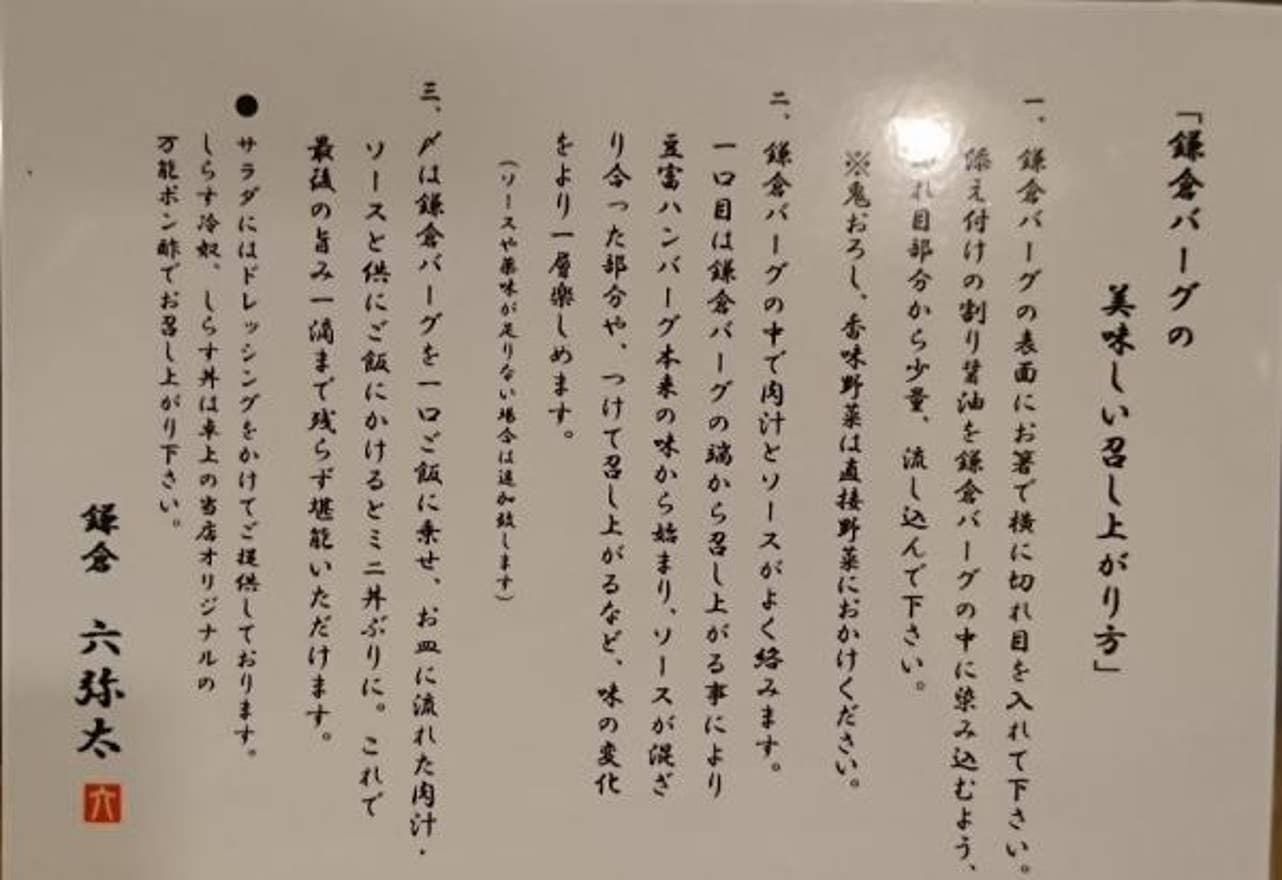 「鎌倉バーグの
美味しい召し上がり方」
一、鎌倉バーグの表面にお箸で横に切れ目を入れて下さい。
添え付けの割り醤油を鎌倉バーグの中に染み込むよう、
れ目部分から少量、流し込んで下さい。
※鬼おろし、香味野菜は直接野菜におかけください。
二、鎌倉バーグの中で肉汁とソースがよく絡みます。
一口目は鎌倉バーグの端から召し上がる事により
豆富ハンバーグ本来の味から始まり、ソースが混ざ
り合った部分や、つけて召し上がるなど、味の変化
をより一層楽しめます。
(ソースや薬味が足りない場合は追加致します)
三、〆は鎌倉バーグを一口ご飯に乗せ、お皿に流れた肉汁・
ソースと供にご飯にかけるとミニ丼ぶりに。これで
最後の旨み一滴まで残らず堪能いただけます。
●サラダにはドレッシングをかけてご提供しております。
しらす冷奴、しらす丼は卓上の当店オリジナルの
万能ポン酢でお召し上がり下さい。
鎌倉 六弥太
六